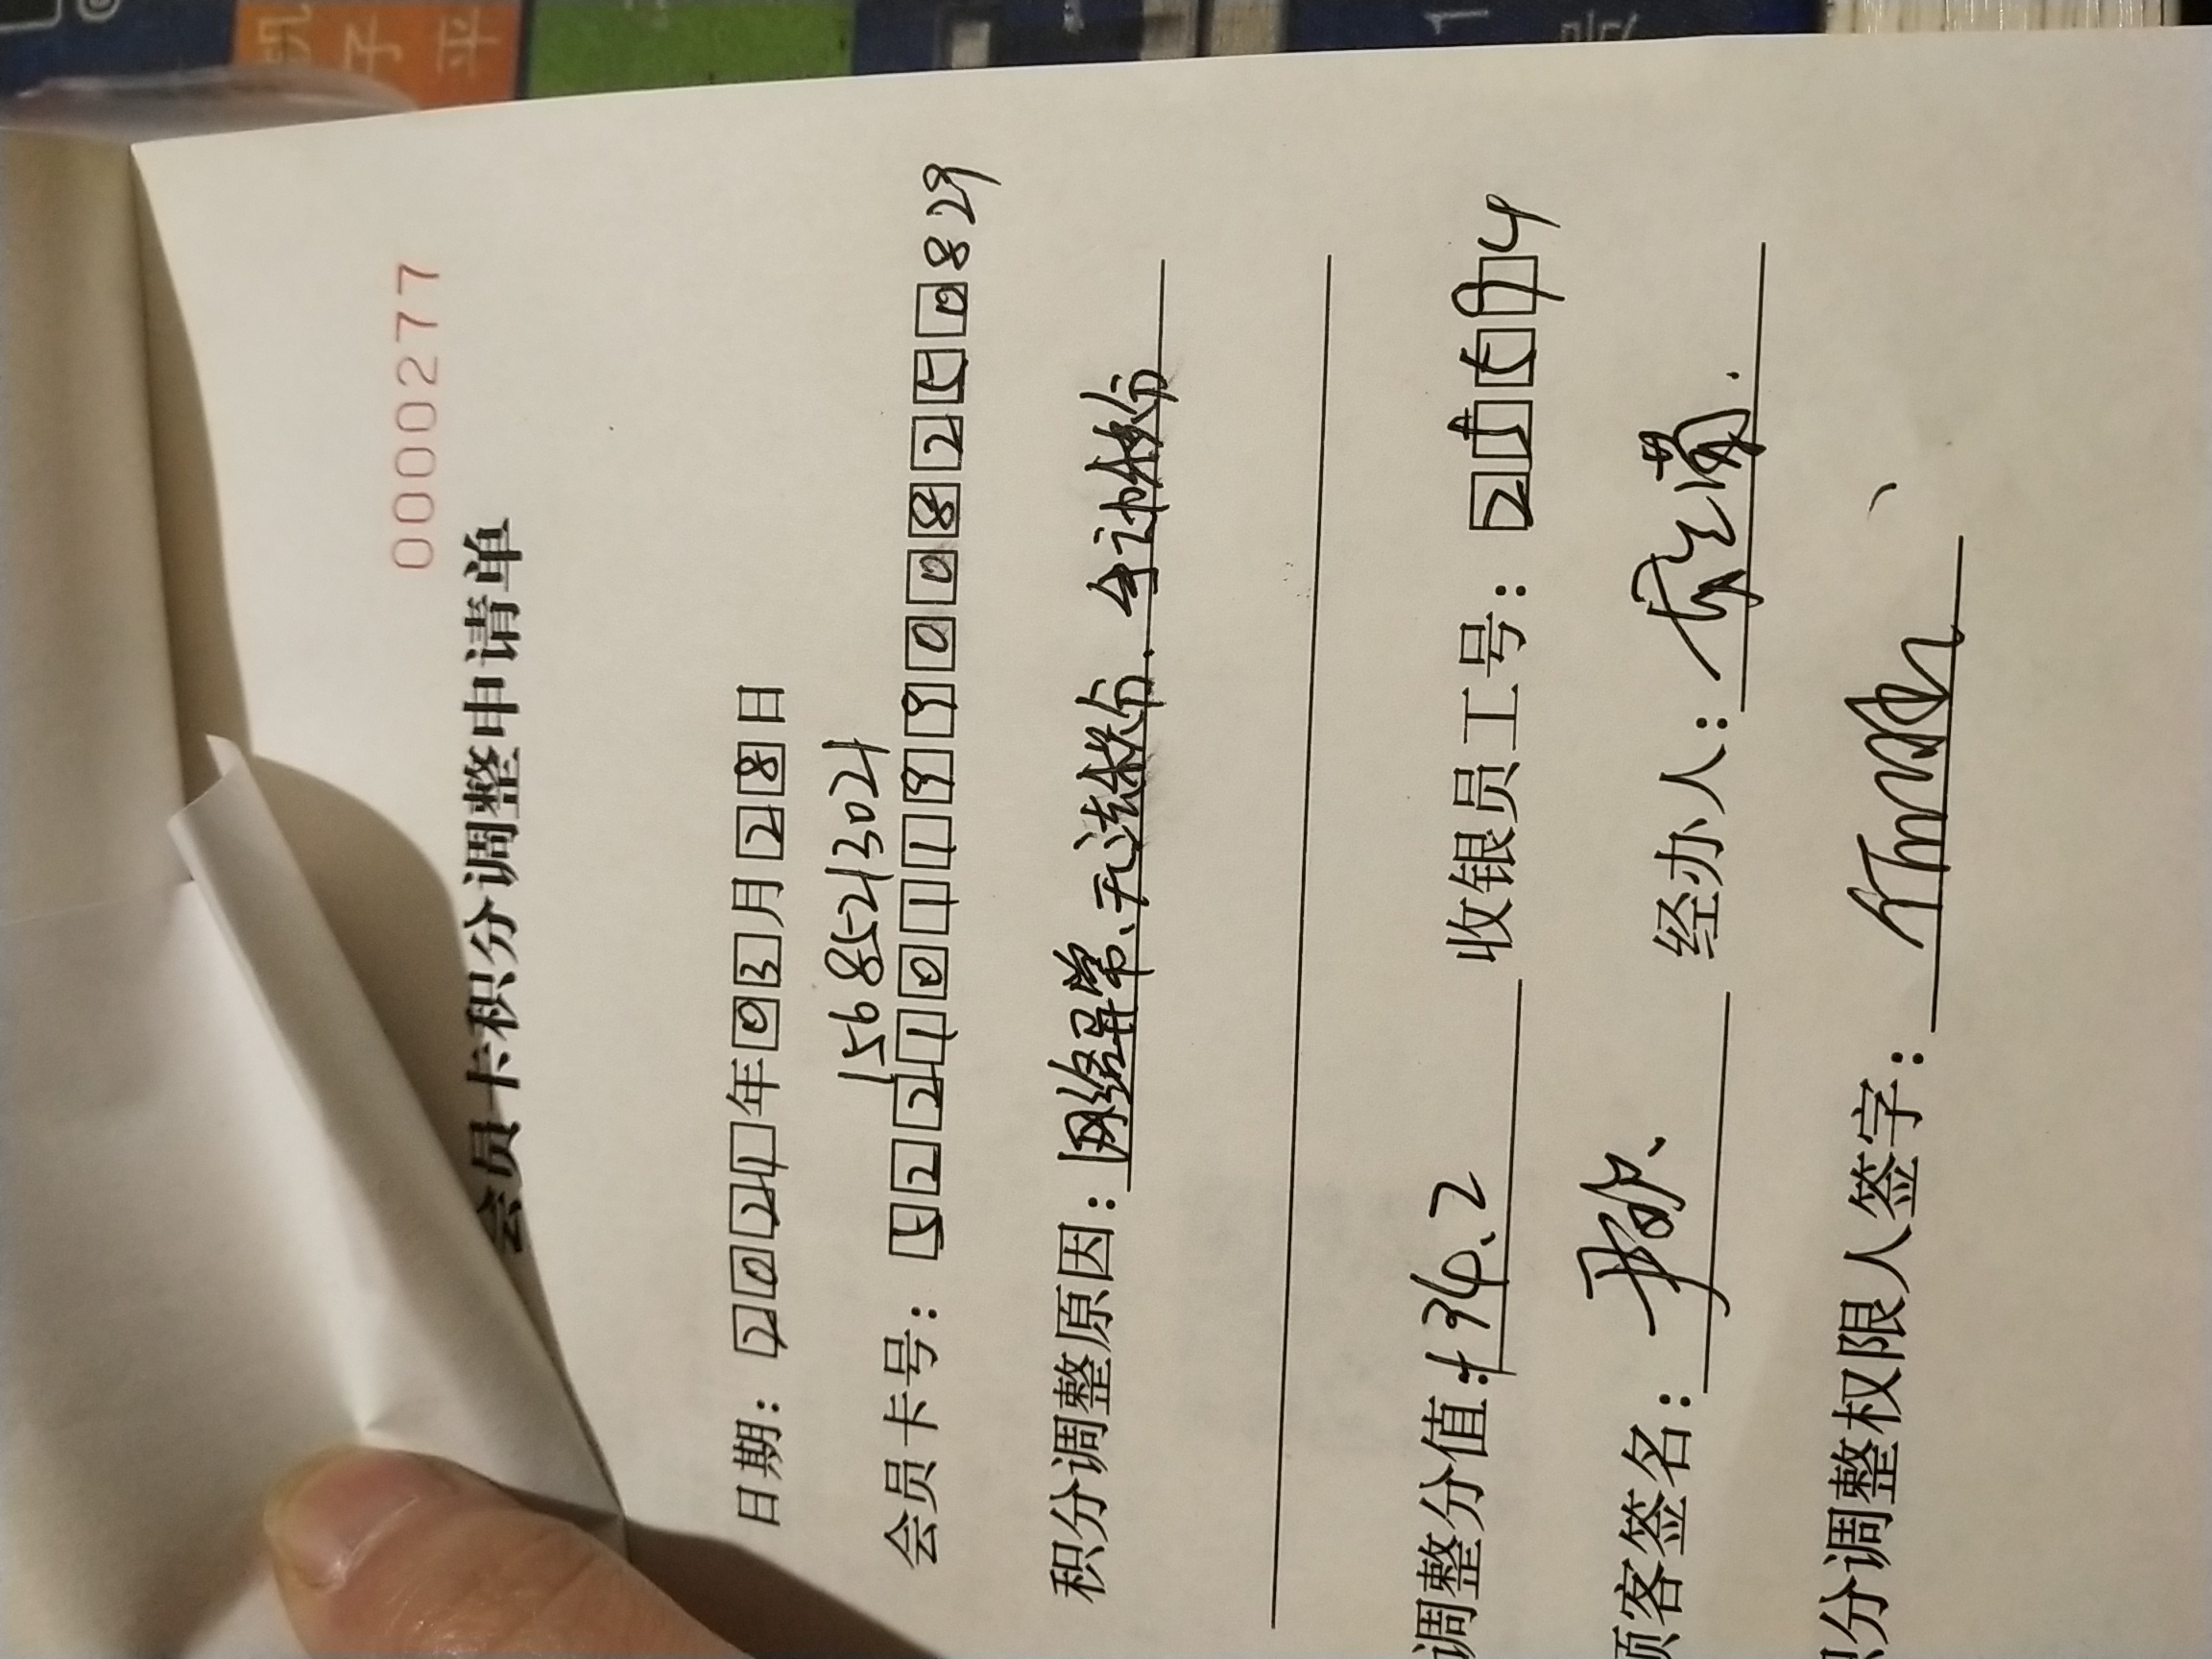 0000277
会员卡积分调整申请单
日期：2024年03月28日
15685213021
会员卡号：522101199008250829
积分调整原因：网络异常、无法积分.手动积分
调整分值：+34.2 收银员工号：
顾客签名： 经办人：
积分调整权限人签字：